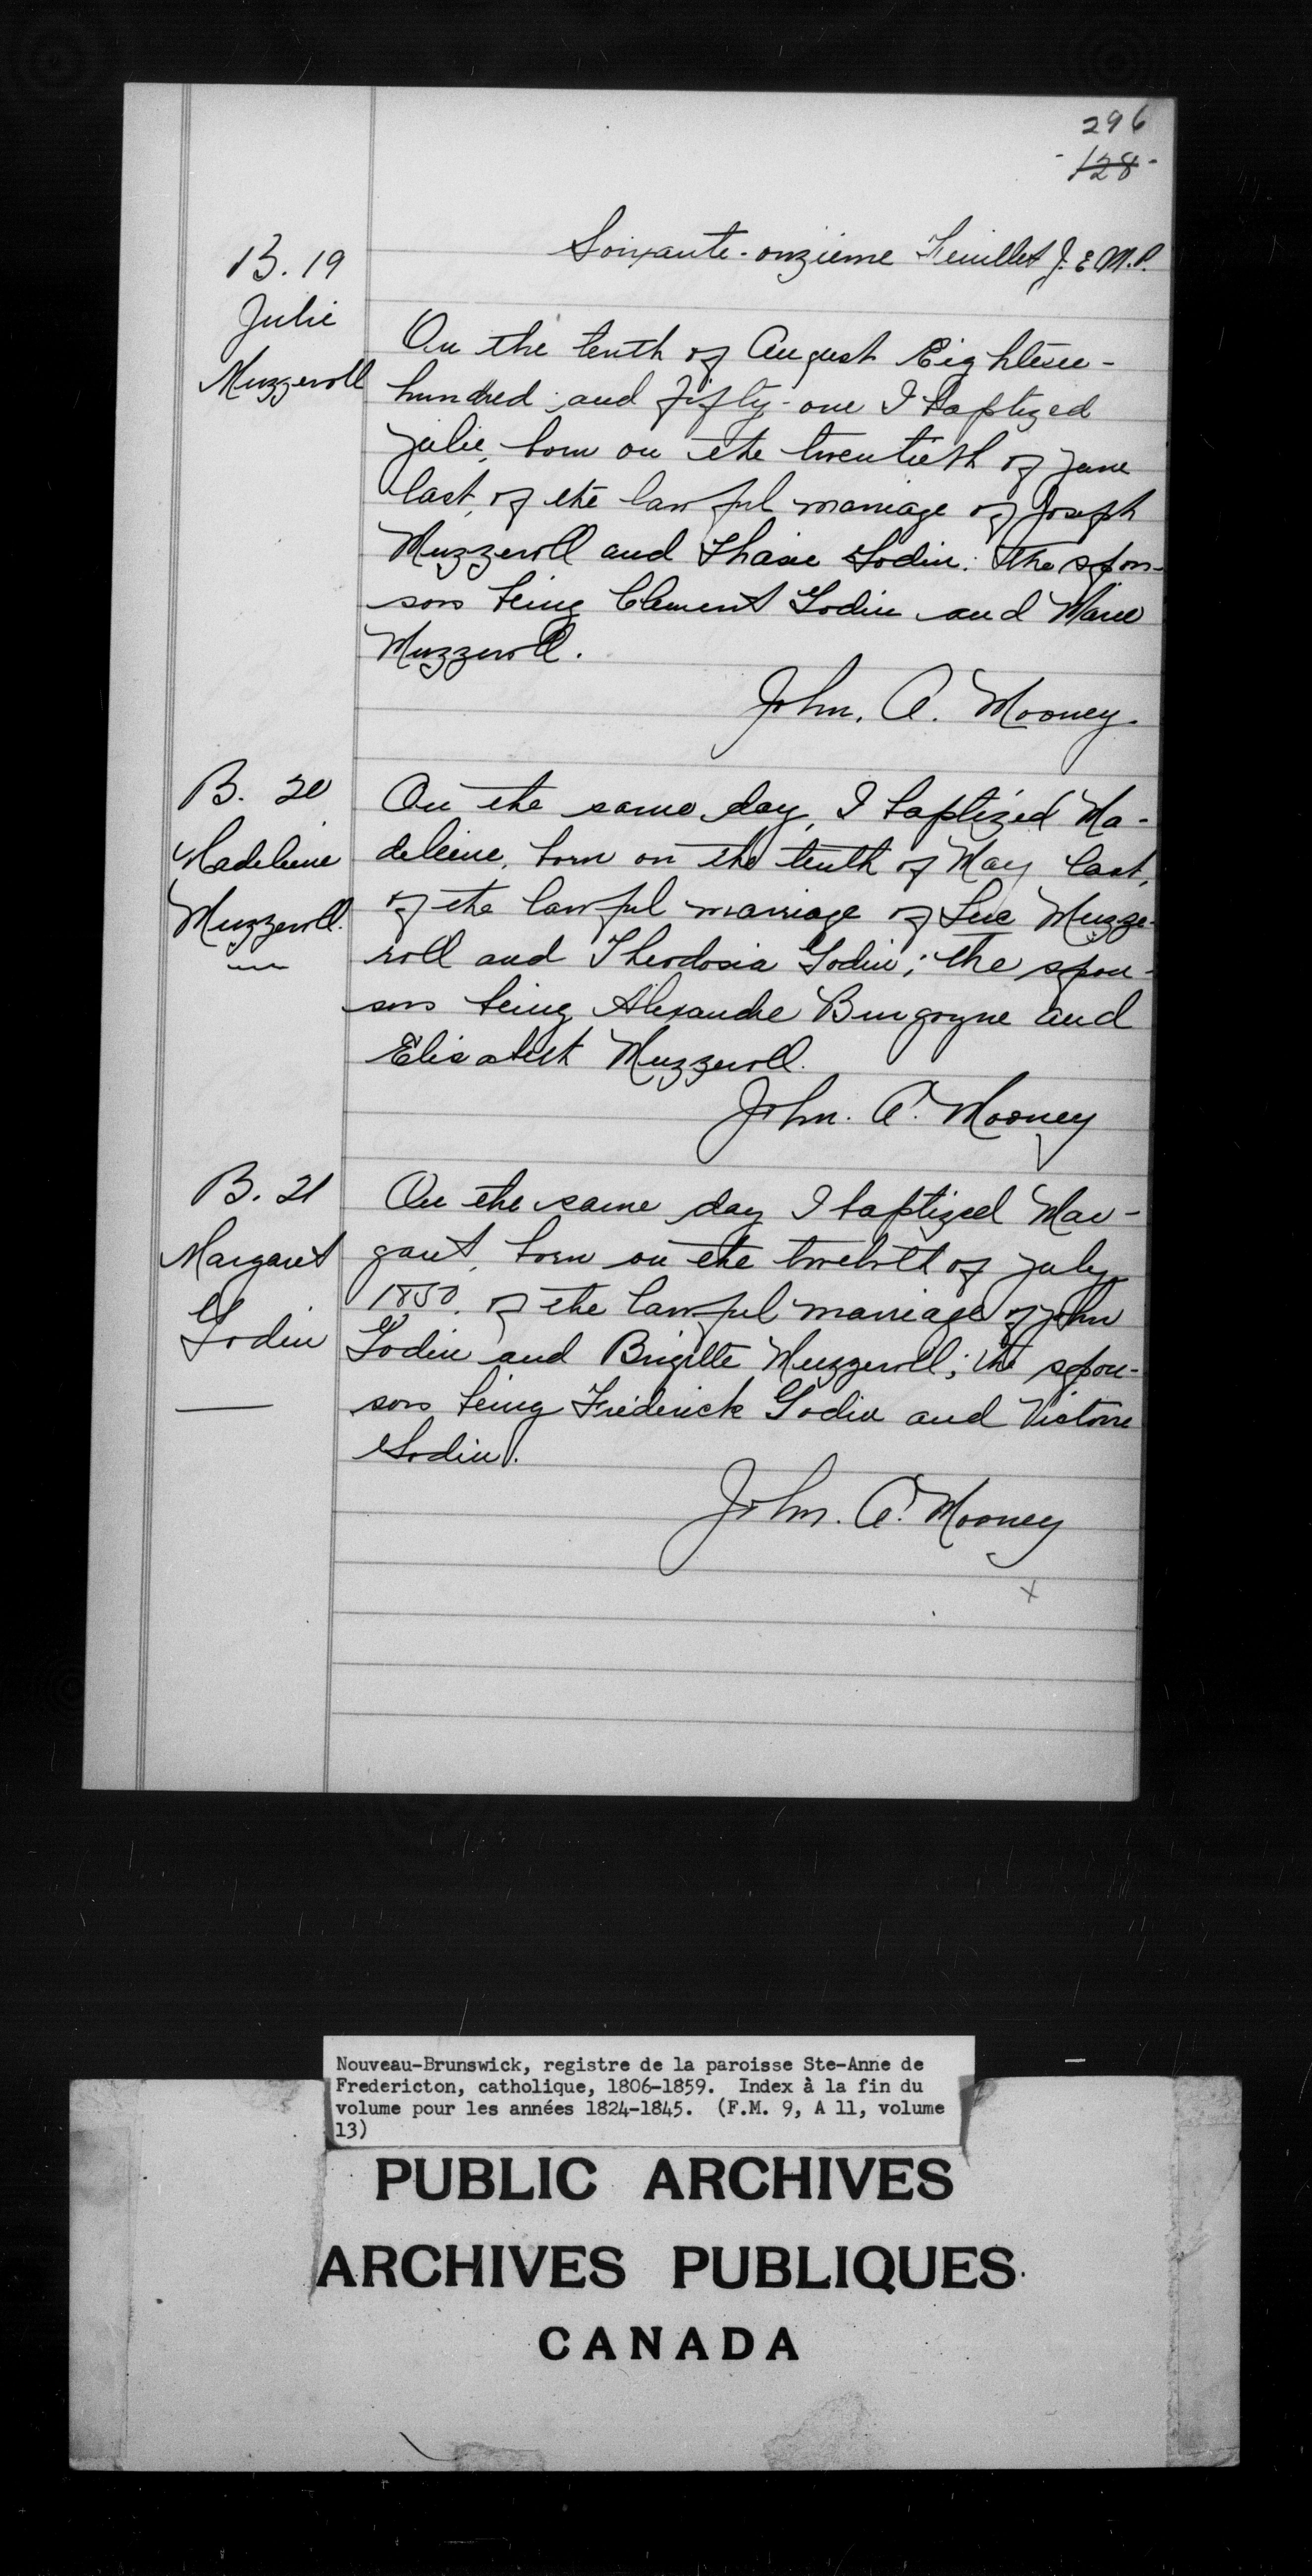 296
-128-
Soixante-onzième Feuillet J. E. M. P.
B. 19
Julie
Muzzeroll
On the tenth of August Eighteen-
hundred and fifty-one I baptized
Julie, born on the twentieth of June
last, of the lawful marriage of Joseph
Muzzeroll and Thasie Godin. The spon-
sors being Clement Godin and Marie
Muzzeroll.
John. A. Mooney.
B. 20
Madeleine
Muzzeroll.
On the same day, I baptized Ma-
deleine, born on the tenth of May last,
of the lawful marriage of Luc Muzze-
roll and Theodosia Godin; the spon-
sors being Alexandre Burgoyne and
Elisabeth Muzzeroll.
John. A. Mooney
B. 21
Margaret
Godin
On the same day I baptized Mar-
garet, born on the twelvth of July
1850, of the lawful marriage of John
Godin and Brigitte Muzzeroll; the spon-
sors being Fréderick Godin and Victoire
Godin.
John. A. Mooney
x
Nouveau-Brunswick, registre de la paroisse Ste-Anne de
Fredericton, catholique, 1806-1859. Index à la fin du
volume pour les années 1824-1845. (F.M. 9, A 11, volume
13)
PUBLIC ARCHIVES
ARCHIVES PUBLIQUES
CANADA